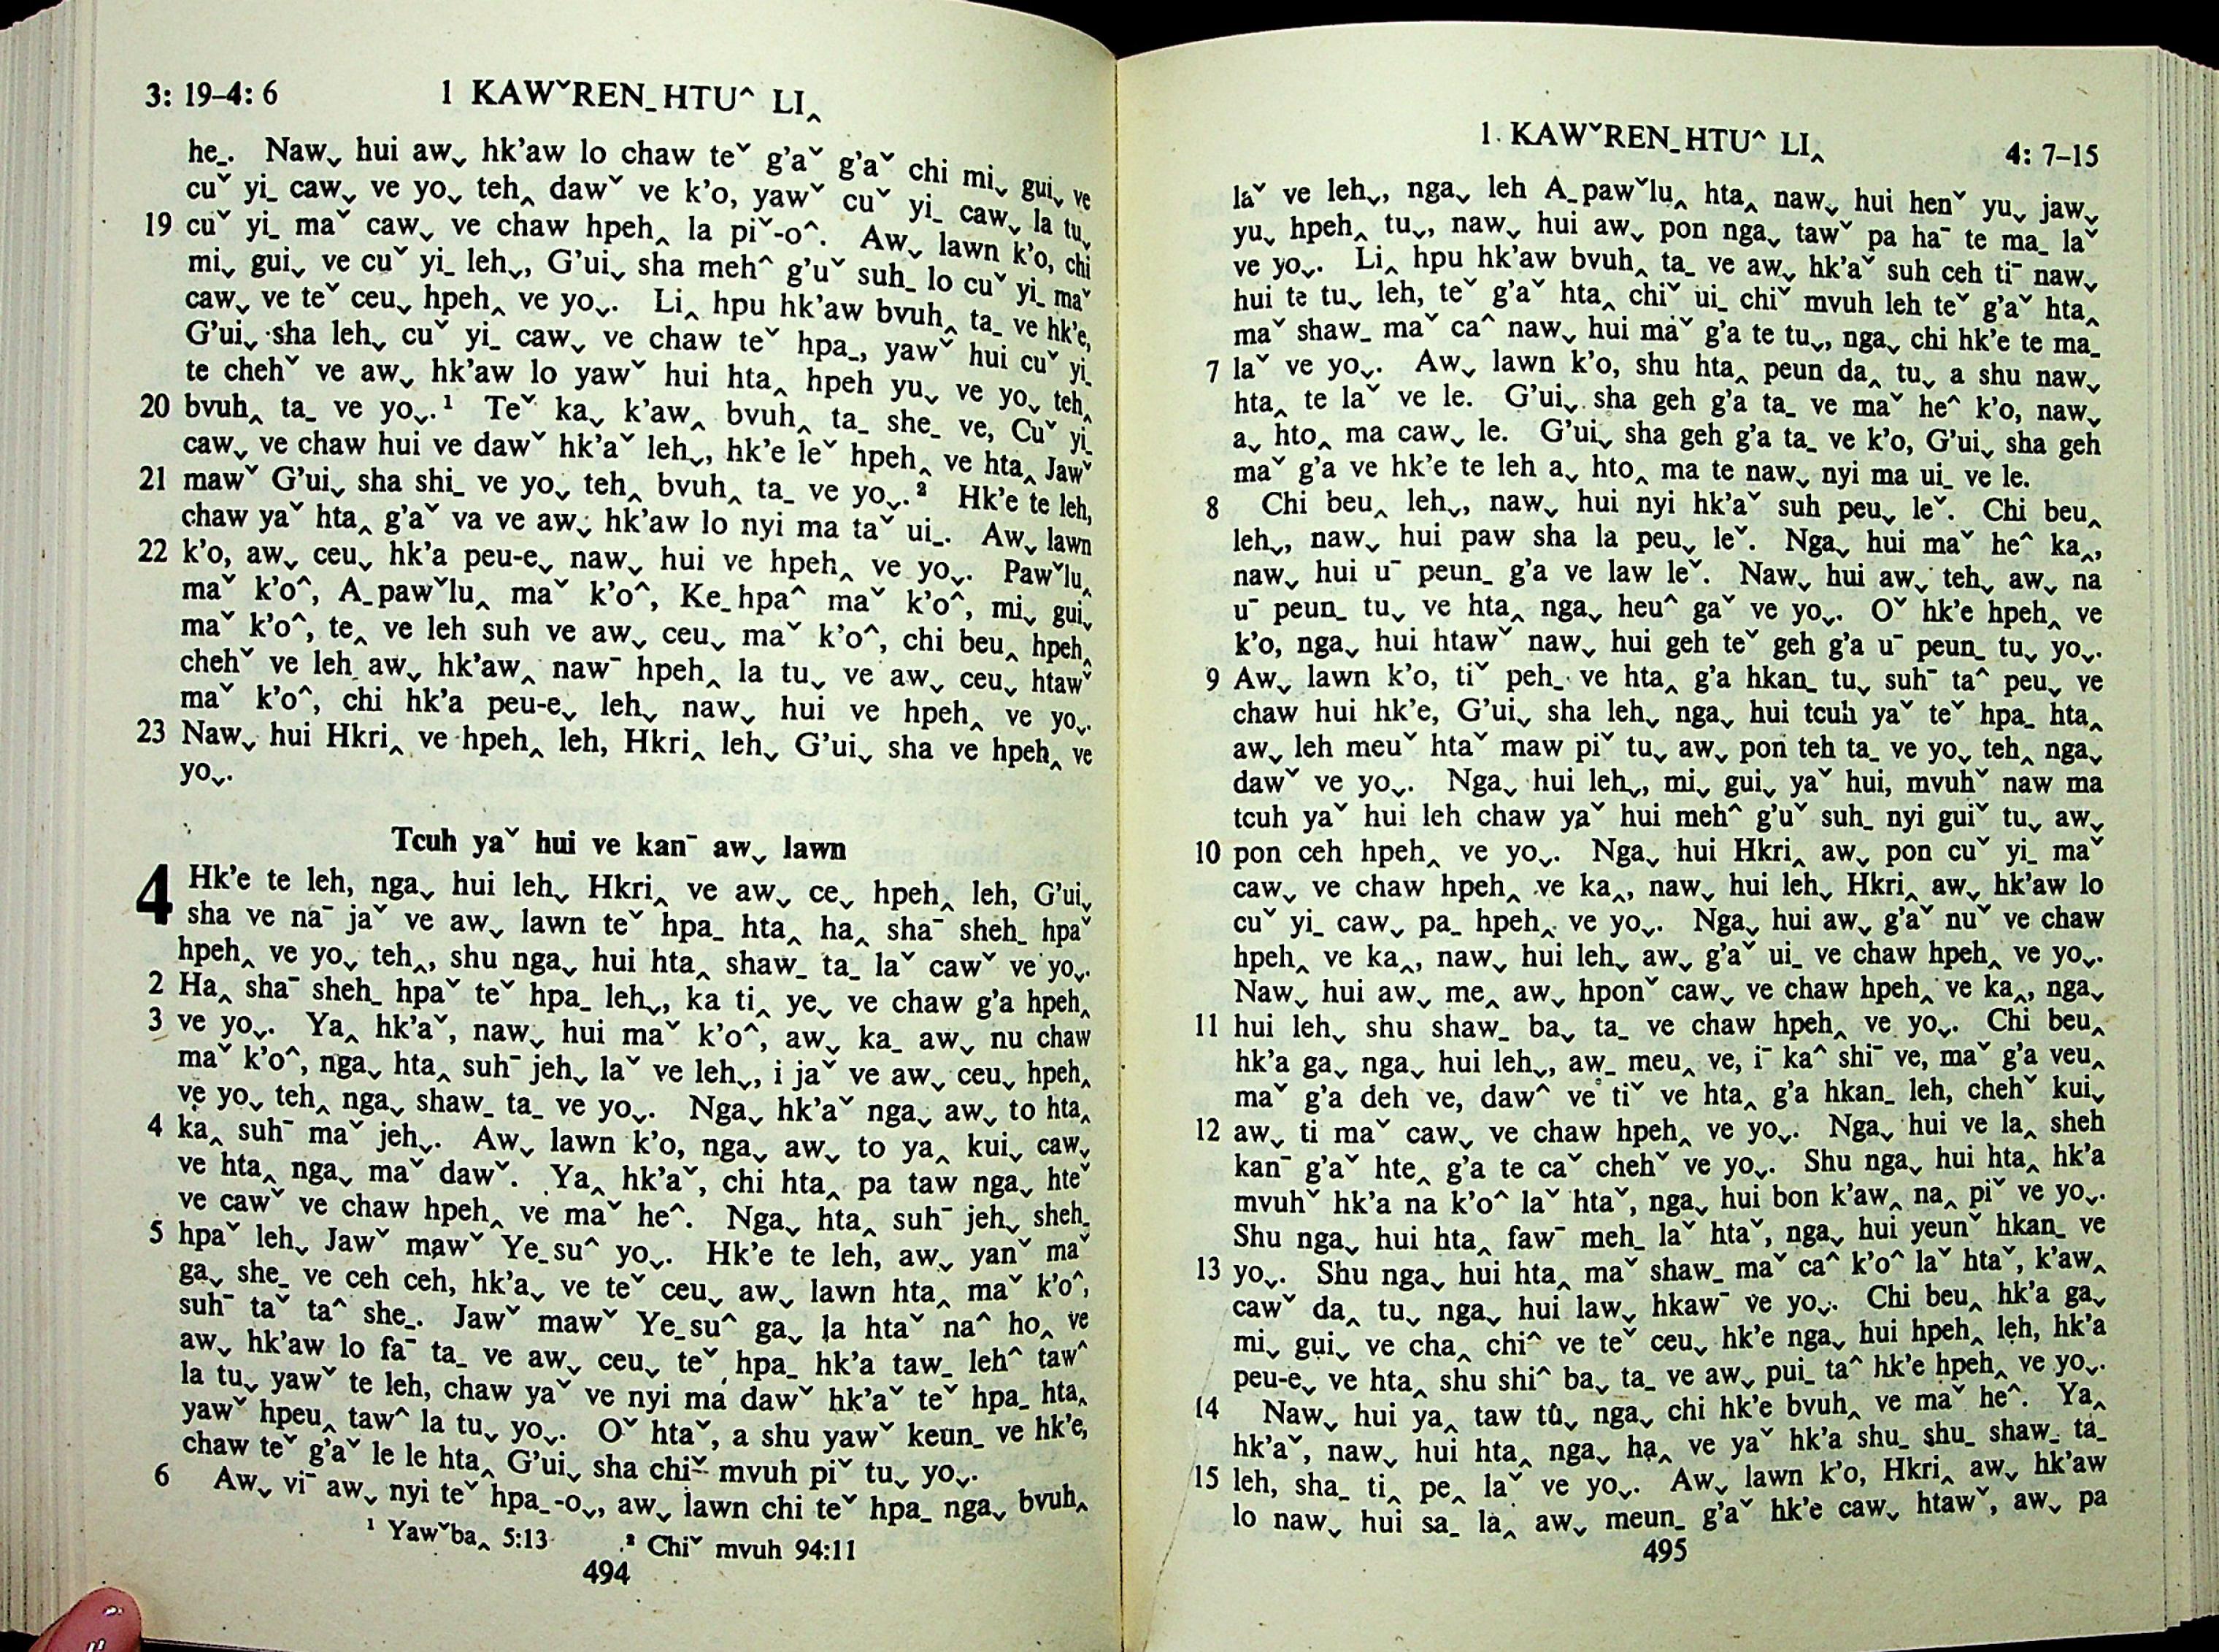 3: 19–4: 6
1 KAWˇREN_HTU^ LI‸
he_. Naw⌄ hui aw⌄ hk’aw lo chaw teˇ g’aˇ g’aˇ chi mi⌄ gui⌄ ve
cuˇ yi_ caw⌄ ve yo⌄ teh‸ dawˇ ve k’o, yawˇ cuˇ yi_ caw⌄ la tu⌄
19 cuˇ yi_ maˇ caw⌄ ve chaw hpeh‸ la piˇ-o^. Aw⌄ lawn k’o, chi
mi⌄ gui⌄ ve cuˇ yi_ leh⌄, G’ui⌄ sha meh^ g’uˇ suh_ lo cuˇ yi_ maˇ
caw⌄ ve teˇ ceu⌄ hpeh‸ ve yo⌄. Li‸ hpu hk’aw bvuh‸ ta_ ve hk’e,
G’ui⌄ sha leh⌄ cuˇ yi_ caw⌄ ve chaw teˇ hpa_, yawˇ hui cuˇ yi_
te chehˇ ve aw⌄ hk’aw lo yawˇ hui hta‸ hpeh yu⌄ ve yo⌄ teh‸
20 bvuh‸ ta_ ve yo⌄.¹ Teˇ ka⌄ k’aw‸ bvuh‸ ta_ she_ ve, Cuˇ yi_
caw⌄ ve chaw hui ve dawˇ hk’aˇ leh⌄, hk’e leˇ hpeh‸ ve hta‸ Jawˇ
21 mawˇ G’ui⌄ sha shi_ ve yo⌄ teh‸ bvuh‸ ta_ ve yo⌄.² Hk’e te leh,
chaw yaˇ hta‸ g’aˇ va ve aw⌄ hk’aw lo nyi ma taˇ ui_. Aw⌄ lawn
22 k’o, aw⌄ ceu⌄ hk’a peu-e⌄ naw⌄ hui ve hpeh‸ ve yo⌄. Pawˇlu‸
maˇ k’o^, A_pawˇlu‸ maˇ k’o^, Ke_hpa^ maˇ k’o^, mi⌄ gui⌄
maˇ k’o^, te‸ ve leh suh ve aw⌄ ceu⌄ maˇ k’o^, chi beu‸ hpeh‸
chehˇ ve leh aw⌄ hk’aw‸ nawˉ hpeh‸ la tu⌄ ve aw⌄ ceu⌄ htawˇ
maˇ k’o^, chi hk’a peu-e⌄ leh⌄ naw⌄ hui ve hpeh‸ ve yo⌄.
23 Naw⌄ hui Hkri‸ ve hpeh‸ leh, Hkri‸ leh⌄ G’ui⌄ sha ve hpeh‸ ve
yo⌄.
Tcuh yaˇ hui ve kanˉ aw⌄ lawn
4 Hk’e te leh, nga⌄ hui leh⌄ Hkri‸ ve aw⌄ ce⌄ hpeh‸ leh, G’ui⌄
sha ve naˉ jaˇ ve aw⌄ lawn teˇ hpa_ hta‸ ha‸ shaˉ sheh_ hpaˇ
hpeh‸ ve yo⌄ teh‸, shu nga⌄ hui hta‸ shaw_ ta_ laˇ cawˇ ve yo⌄.
2 Ha‸ shaˉ sheh_ hpaˇ teˇ hpa_ leh⌄, ka ti‸ ye⌄ ve chaw g’a hpeh‸
3 ve yo⌄. Ya‸ hk’aˇ, naw⌄ hui maˇ k’o^, aw⌄ ka_ aw⌄ nu chaw
maˇ k’o^, nga⌄ hta‸ suhˉ jeh⌄ laˇ ve leh⌄, i jaˇ ve aw⌄ ceu⌄ hpeh‸
ve yo⌄ teh‸ nga⌄ shaw_ ta_ ve yo⌄. Nga⌄ hk’aˇ nga⌄ aw⌄ to hta‸
4 ka‸ suhˉ maˇ jeh⌄. Aw⌄ lawn k’o, nga⌄ aw⌄ to ya‸ kui⌄ caw⌄
ve hta‸ nga⌄ maˇ dawˇ. Ya‸ hk’aˇ, chi hta‸ pa taw nga⌄ hteˇ
ve cawˇ ve chaw hpeh‸ ve maˇ he^. Nga⌄ hta‸ suhˉ jeh⌄ sheh_
5 hpaˇ leh⌄ Jawˇ mawˇ Ye_su^ yo⌄. Hk’e te leh, aw⌄ yanˇ maˇ
ga⌄ she_ ve ceh ceh, hk’a⌄ ve teˇ ceu⌄ aw⌄ lawn hta‸ maˇ k’o^,
suhˉ taˇ ta^ she_. Jawˇ mawˇ Ye_su^ ga⌄ la htaˇ na^ ho‸ ve
aw⌄ hk’aw lo faˉ ta_ ve aw⌄ ceu⌄ teˇ hpa_ hk’a taw_ leh^ taw^
la tu⌄ yawˇ te leh, chaw yaˇ ve nyi ma dawˇ hk’aˇ teˇ hpa_ hta‸
yawˇ hpeu‸ taw^ la tu⌄ yo⌄. Oˇ htaˇ, a shu yawˇ keun_ ve hk’e,
chaw teˇ g’aˇ le le hta‸ G’ui⌄ sha chiˇ mvuh piˇ tu⌄ yo⌄.
6 Aw⌄ viˉ aw⌄ nyi teˇ hpa_-o⌄, aw⌄ lawn chi teˇ hpa_ nga⌄ bvuh‸
¹ Yawˇba‸ 5:13 ² Chiˇ mvuh 94:11
494
1. KAWˇREN_HTU^ LI‸
4: 7–15
laˇ ve leh⌄, nga⌄ leh A_pawˇlu‸ hta‸ naw⌄ hui henˇ yu⌄ jaw⌄
yu⌄ hpeh‸ tu⌄, naw⌄ hui aw⌄ pon nga⌄ tawˇ pa haˉ te ma_ laˇ
ve yo⌄. Li‸ hpu hk’aw bvuh‸ ta_ ve aw⌄ hk’aˇ suh ceh tiˉ naw⌄
hui te tu⌄ leh, teˇ g’aˇ hta‸ chiˇ ui_ chiˇ mvuh leh teˇ g’aˇ hta‸
maˇ shaw_ maˇ ca^ naw⌄ hui maˇ g’a te tu⌄, nga⌄ chi hk’e te ma_
7 laˇ ve yo⌄. Aw⌄ lawn k’o, shu hta‸ peun da‸ tu⌄ a shu naw⌄
hta‸ te laˇ ve le. G’ui⌄ sha geh g’a ta_ ve maˇ he^ k’o, naw⌄
a⌄ hto‸ ma caw⌄ le. G’ui⌄ sha geh g’a ta_ ve k’o, G’ui⌄ sha geh
maˇ g’a ve hk’e te leh a⌄ hto‸ ma te naw⌄ nyi ma ui_ ve le.
8 Chi beu‸ leh⌄, naw⌄ hui nyi hk’aˇ suh peu⌄ leˇ. Chi beu‸
leh⌄, naw⌄ hui paw sha la peu⌄ leˇ. Nga⌄ hui maˇ he^ ka‸,
naw⌄ hui uˉ peun_ g’a ve law leˇ. Naw⌄ hui aw⌄ teh⌄ aw⌄ na
uˉ peun_ tu⌄ ve hta‸ nga⌄ heu^ gaˇ ve yo⌄. Oˇ hk’e hpeh‸ ve
k’o, nga⌄ hui htawˇ naw⌄ hui geh teˇ geh g’a uˉ peun_ tu⌄ yo⌄.
9 Aw⌄ lawn k’o, tiˇ peh_ ve hta‸ g’a hkan_ tu⌄ suhˉ ta^ peu⌄ ve
chaw hui hk’e, G’ui⌄ sha leh⌄ nga⌄ hui tcuh yaˇ teˇ hpa_ hta‸
aw⌄ leh meuˇ htaˇ maw piˇ tu⌄ aw⌄ pon teh ta_ ve yo⌄ teh‸ nga⌄
dawˇ ve yo⌄. Nga⌄ hui leh⌄, mi⌄ gui⌄ yaˇ hui, mvuhˇ naw ma
tcuh yaˇ hui leh chaw yaˇ hui meh^ g’uˇ suh_ nyi guiˇ tu⌄ aw⌄
10 pon ceh hpeh‸ ve yo⌄. Nga⌄ hui Hkri‸ aw⌄ pon cuˇ yi_ maˇ
caw⌄ ve chaw hpeh‸ ve ka‸, naw⌄ hui leh⌄ Hkri‸ aw⌄ hk’aw lo
cuˇ yi_ caw⌄ pa_ hpeh‸ ve yo⌄. Nga⌄ hui aw⌄ g’aˇ nuˇ ve chaw
hpeh‸ ve ka‸, naw⌄ hui leh⌄ aw⌄ g’aˇ ui_ ve chaw hpeh‸ ve yo⌄.
Naw⌄ hui aw⌄ me‸ aw⌄ hponˇ caw⌄ ve chaw hpeh‸ ve ka‸, nga⌄
11 hui leh⌄ shu shaw_ ba⌄ ta_ ve chaw hpeh‸ ve yo⌄. Chi beu‸
hk’a ga⌄ nga⌄ hui leh⌄, aw_ meu‸ ve, iˉ ka^ shiˉ ve, maˇ g’a veu‸
maˇ g’a deh ve, daw^ ve tiˇ ve hta‸ g’a hkan_ leh, chehˇ kui⌄
12 aw⌄ ti maˇ caw⌄ ve chaw hpeh‸ ve yo⌄. Nga⌄ hui ve la‸ sheh
kanˉ g’aˇ hte‸ g’a te caˇ chehˇ ve yo⌄. Shu nga⌄ hui hta‸ hk’a
mvuhˇ hk’a na k’o^ laˇ htaˇ, nga⌄ hui bon k’aw‸ na‸ piˇ ve yo⌄.
Shu nga⌄ hui hta‸ fawˉ meh_ laˇ htaˇ, nga⌄ hui yeunˇ hkan_ ve
13 yo⌄. Shu nga⌄ hui hta‸ maˇ shaw_ maˇ ca^ k’o^ laˇ htaˇ, k’aw‸
cawˇ da‸ tu⌄ nga⌄ hui law⌄ hkawˉ ve yo⌄. Chi beu‸ hk’a ga⌄
mi⌄ gui⌄ ve cha‸ chi^ ve teˇ ceu⌄ hk’e nga⌄ hui hpeh‸ leh, hk’a
peu-e⌄ ve hta‸ shu shi^ ba⌄ ta_ ve aw⌄ pui_ ta^ hk’e hpeh‸ ve yo⌄.
14 Naw⌄ hui ya‸ taw tu⌄ nga⌄ chi hk’e bvuh‸ ve maˇ he^. Ya‸
hk’aˇ, naw⌄ hui hta‸ nga⌄ ha‸ ve yaˇ hk’a shu_ shu_ shaw_ ta_
15 leh, sha_ ti‸ pe‸ laˇ ve yo⌄. Aw⌄ lawn k’o, Hkri‸ aw⌄ hk’aw
lo naw⌄ hui sa_ la‸ aw⌄ meun_ g’aˇ hk’e caw⌄ htawˇ, aw⌄ pa
495